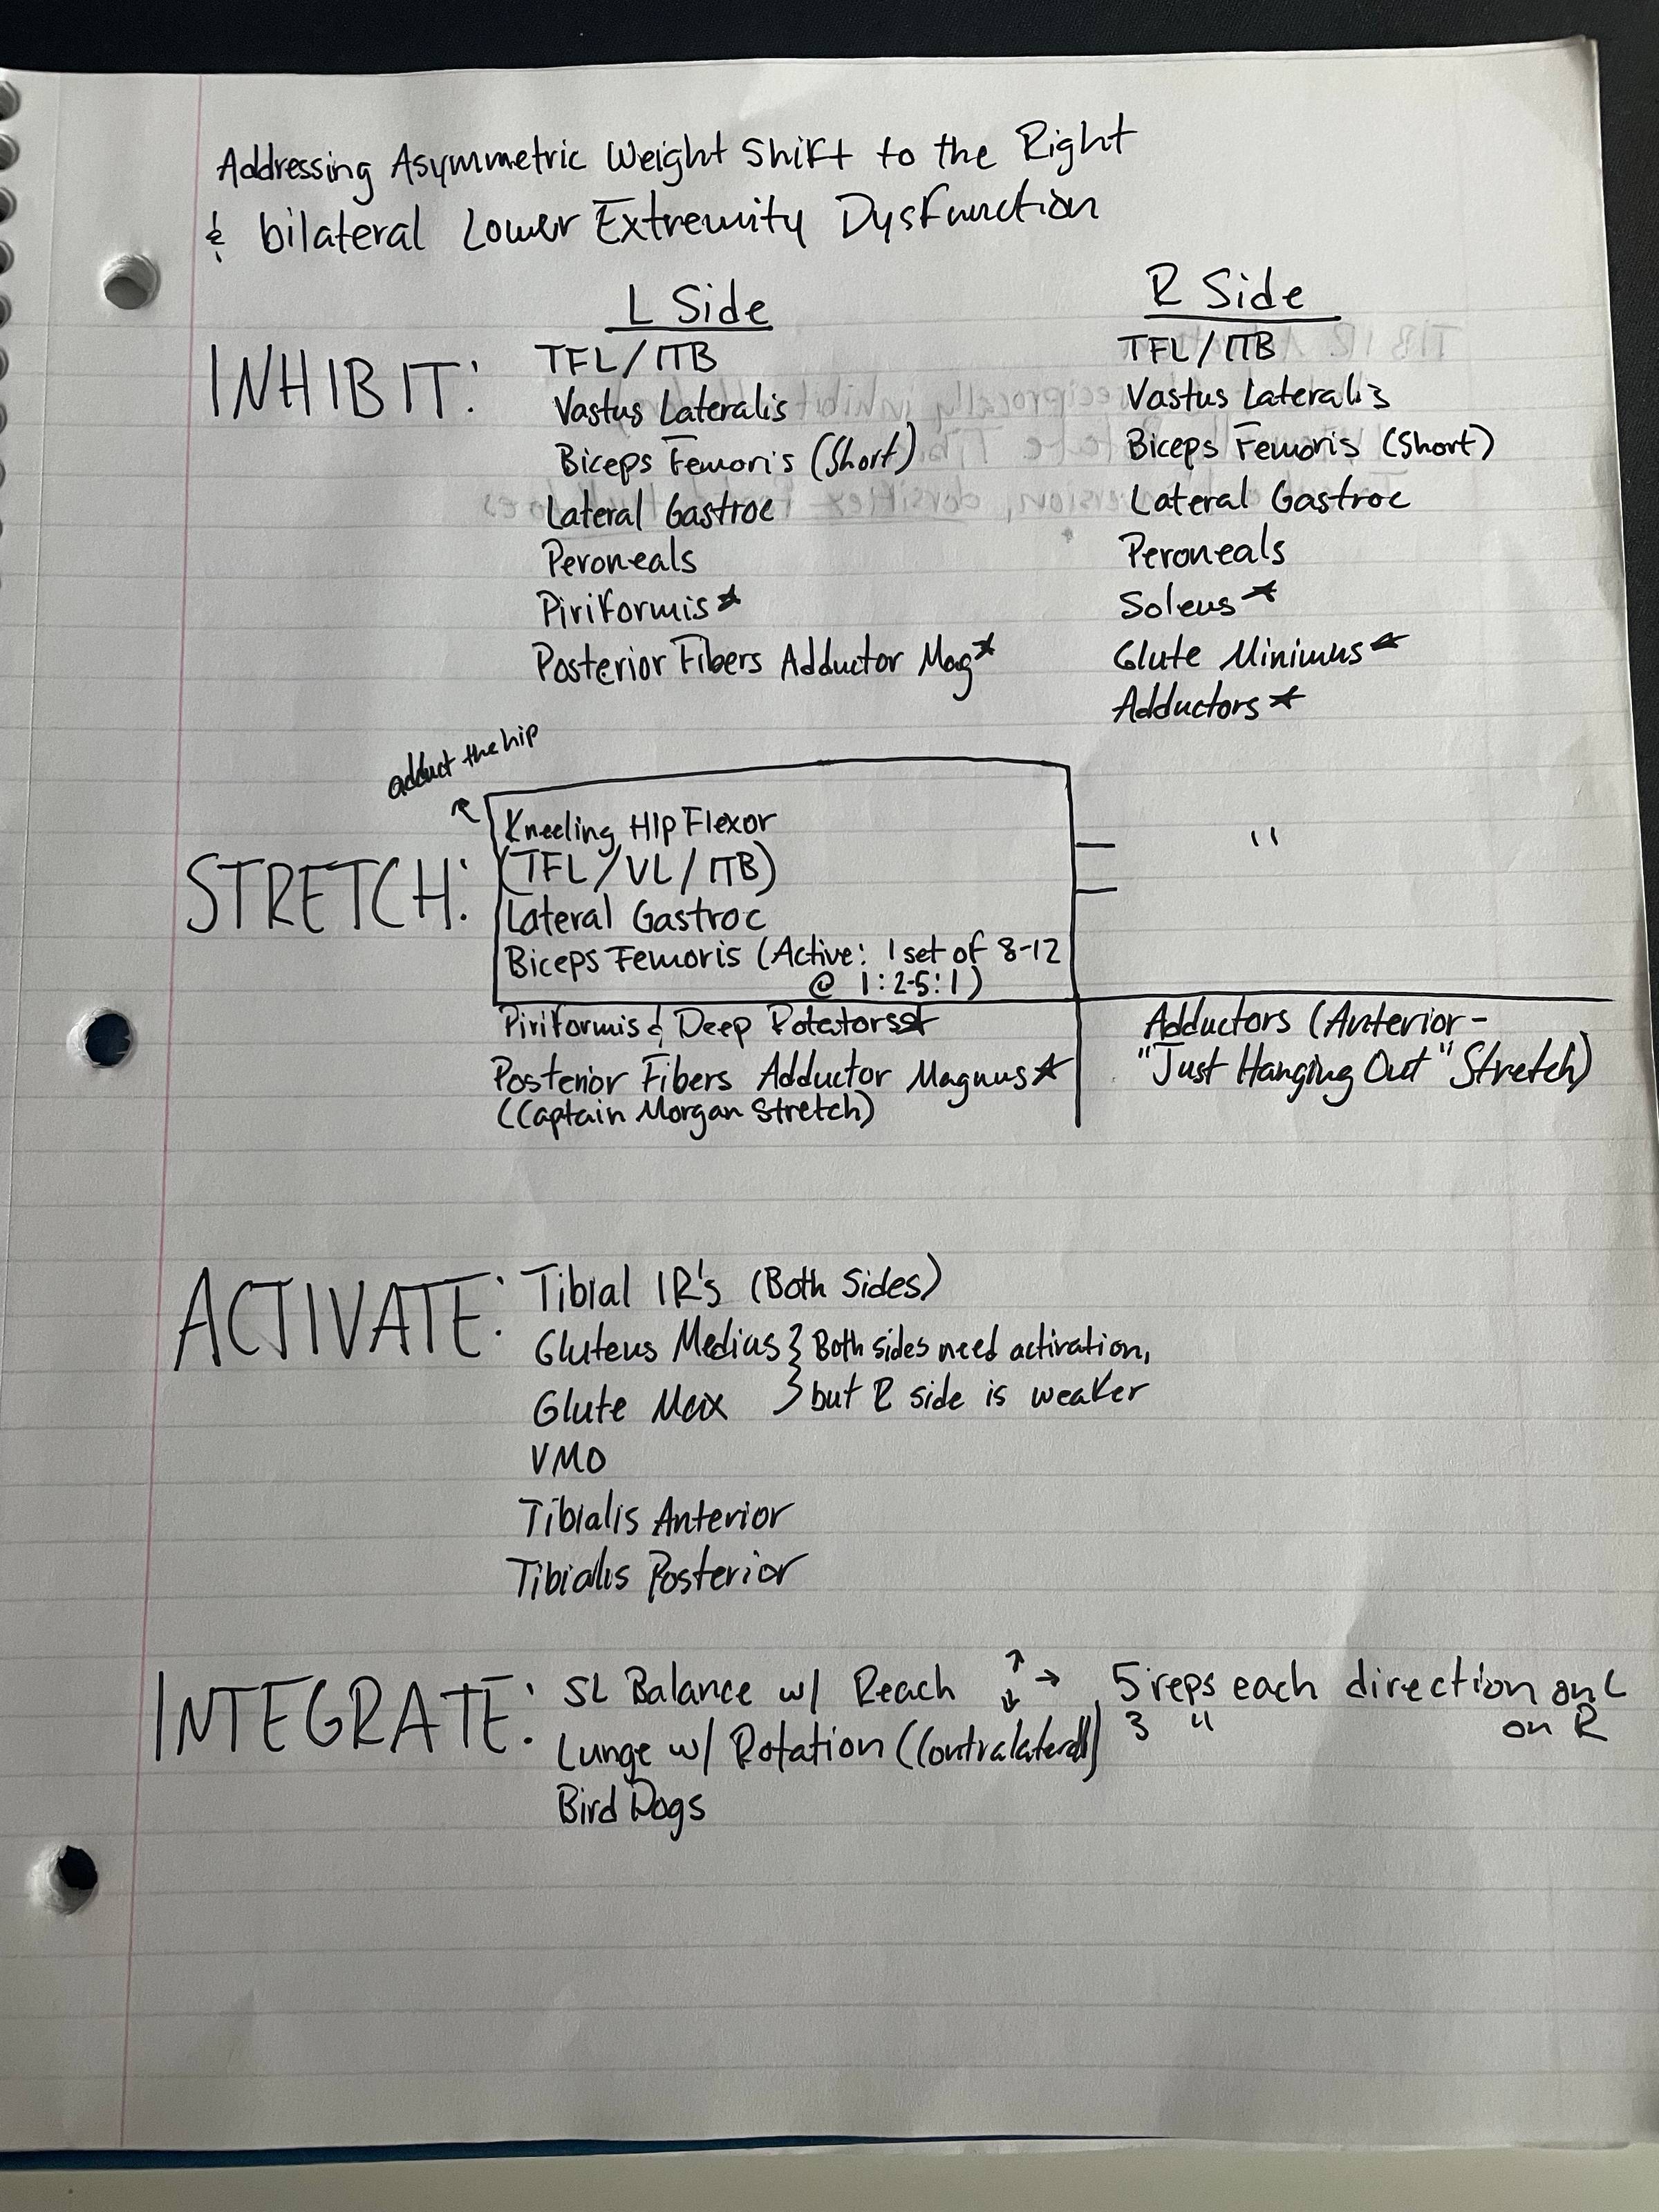 Addressing Asymmetric Weight Shift to the Right
& bilateral Lower Extremity Dysfunction
L Side
R Side
INHIBIT:
TFL/ITB
Vastus Lateralis
Biceps Femoris (Short)
Lateral Gastroc
Peroneals
Piriformis★
Posterior Fibers Adductor Mag★
TFL/ITB
Vastus Lateralis
Biceps Femoris (Short)
Lateral Gastroc
Peroneals
Soleus★
Glute Minimus★
Adductors★
adduct the hip
↖
STRETCH:
Kneeling Hip Flexor
(TFL/VL/ITB)
Lateral Gastroc
Biceps Femoris (Active: 1 set of 8-12
@ 1:2-5:1)
= "
Piriformis & Deep Rotators★
Posterior Fibers Adductor Magnus★
(Captain Morgan Stretch)
Adductors (Anterior-
"Just Hanging Out" Stretch)
ACTIVATE:
Tibial IR's (Both Sides)
Gluteus Medius } Both sides need activation,
Glute Max } but R side is weaker
VMO
Tibialis Anterior
Tibialis Posterior
INTEGRATE:
SL Balance w/ Reach ↑ → ↓ 5 reps each direction on L
3 " on R
Lunge w/ Rotation (Contralateral)
Bird Dogs